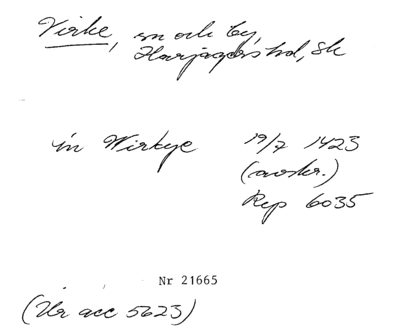 Virke, sn och by,
Harjagers hd, Sk
in Wirkye 19/7 1423
(avskr.)
Rep 6035
Nr 21665
(Ur acc 5623)